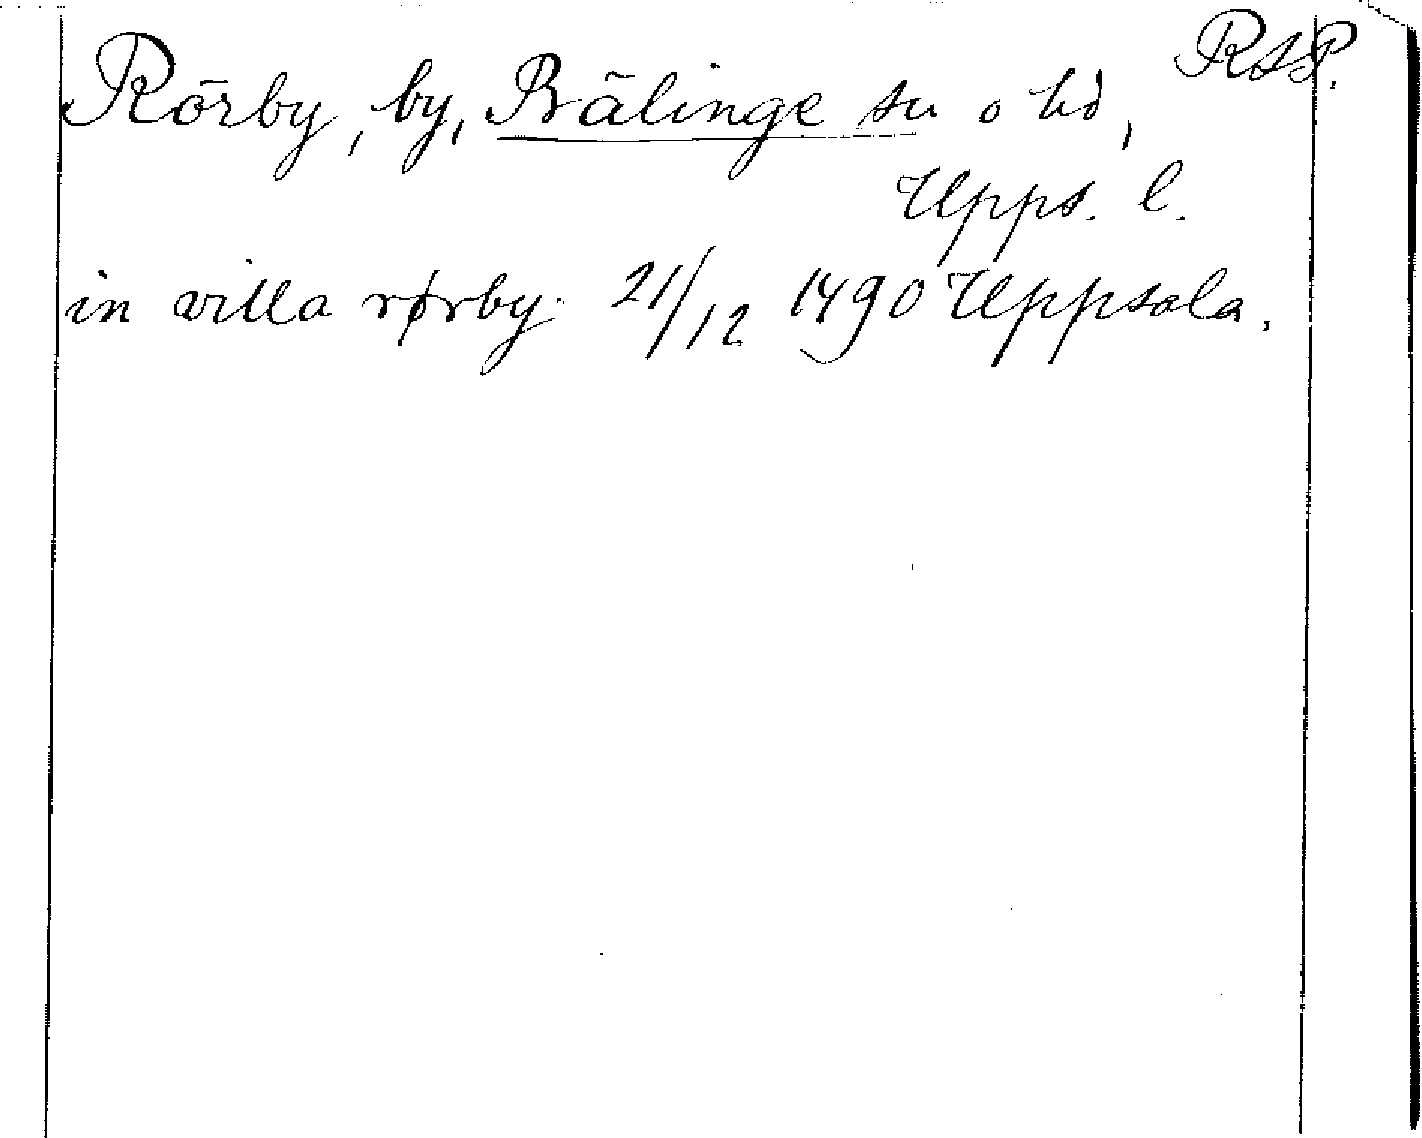 RAP.
Rörby, by, Bälinge sn o hd,
Upps. l.
in villa rørby 21/12 1490 Uppsala.